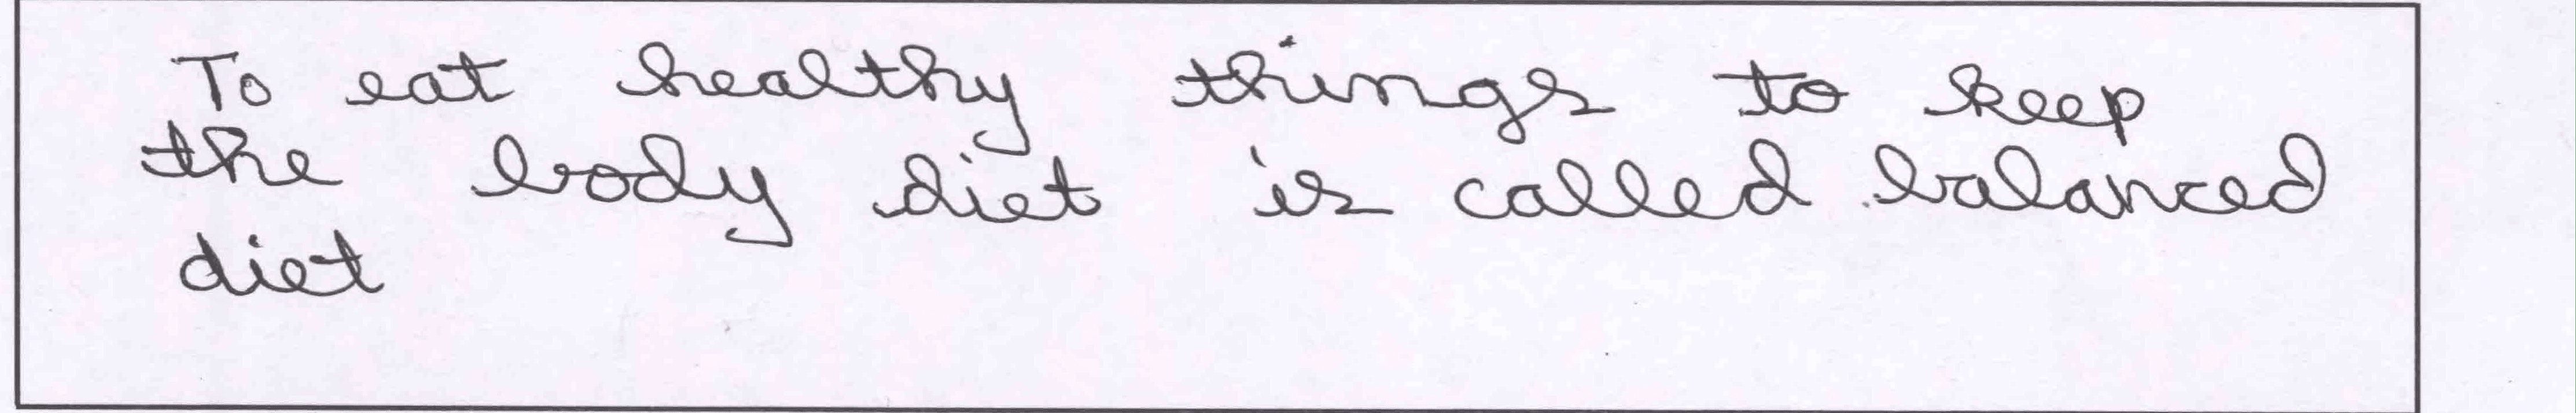 To eat healthy things to keep
the body diet is called balanced
diet